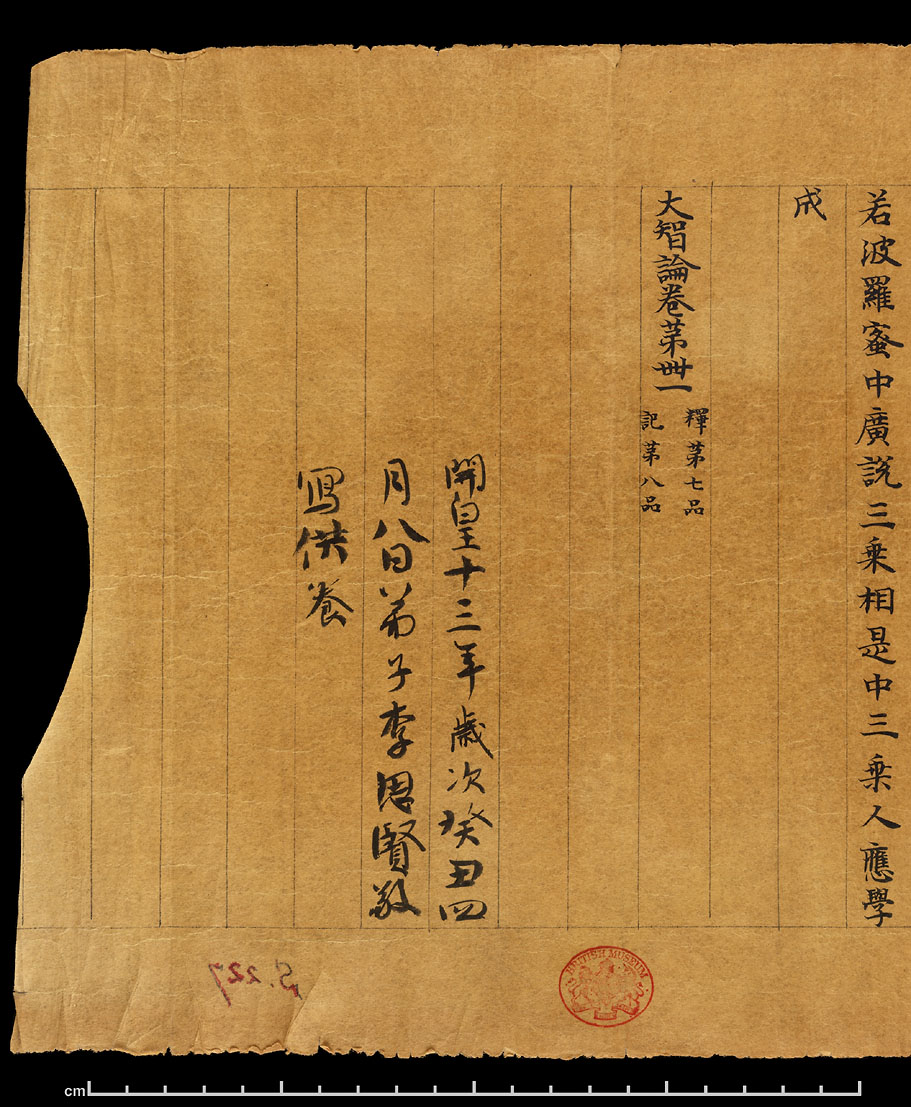 若波羅蜜中廣說三乗相是中三乗人應學
成
大智論卷苐卌一
釋苐七品
記苐八品
開皇十三年歲次癸丑四
月八日弟子李思賢敬
寫供養
BRITISH MUSEUM
S. 227
cm